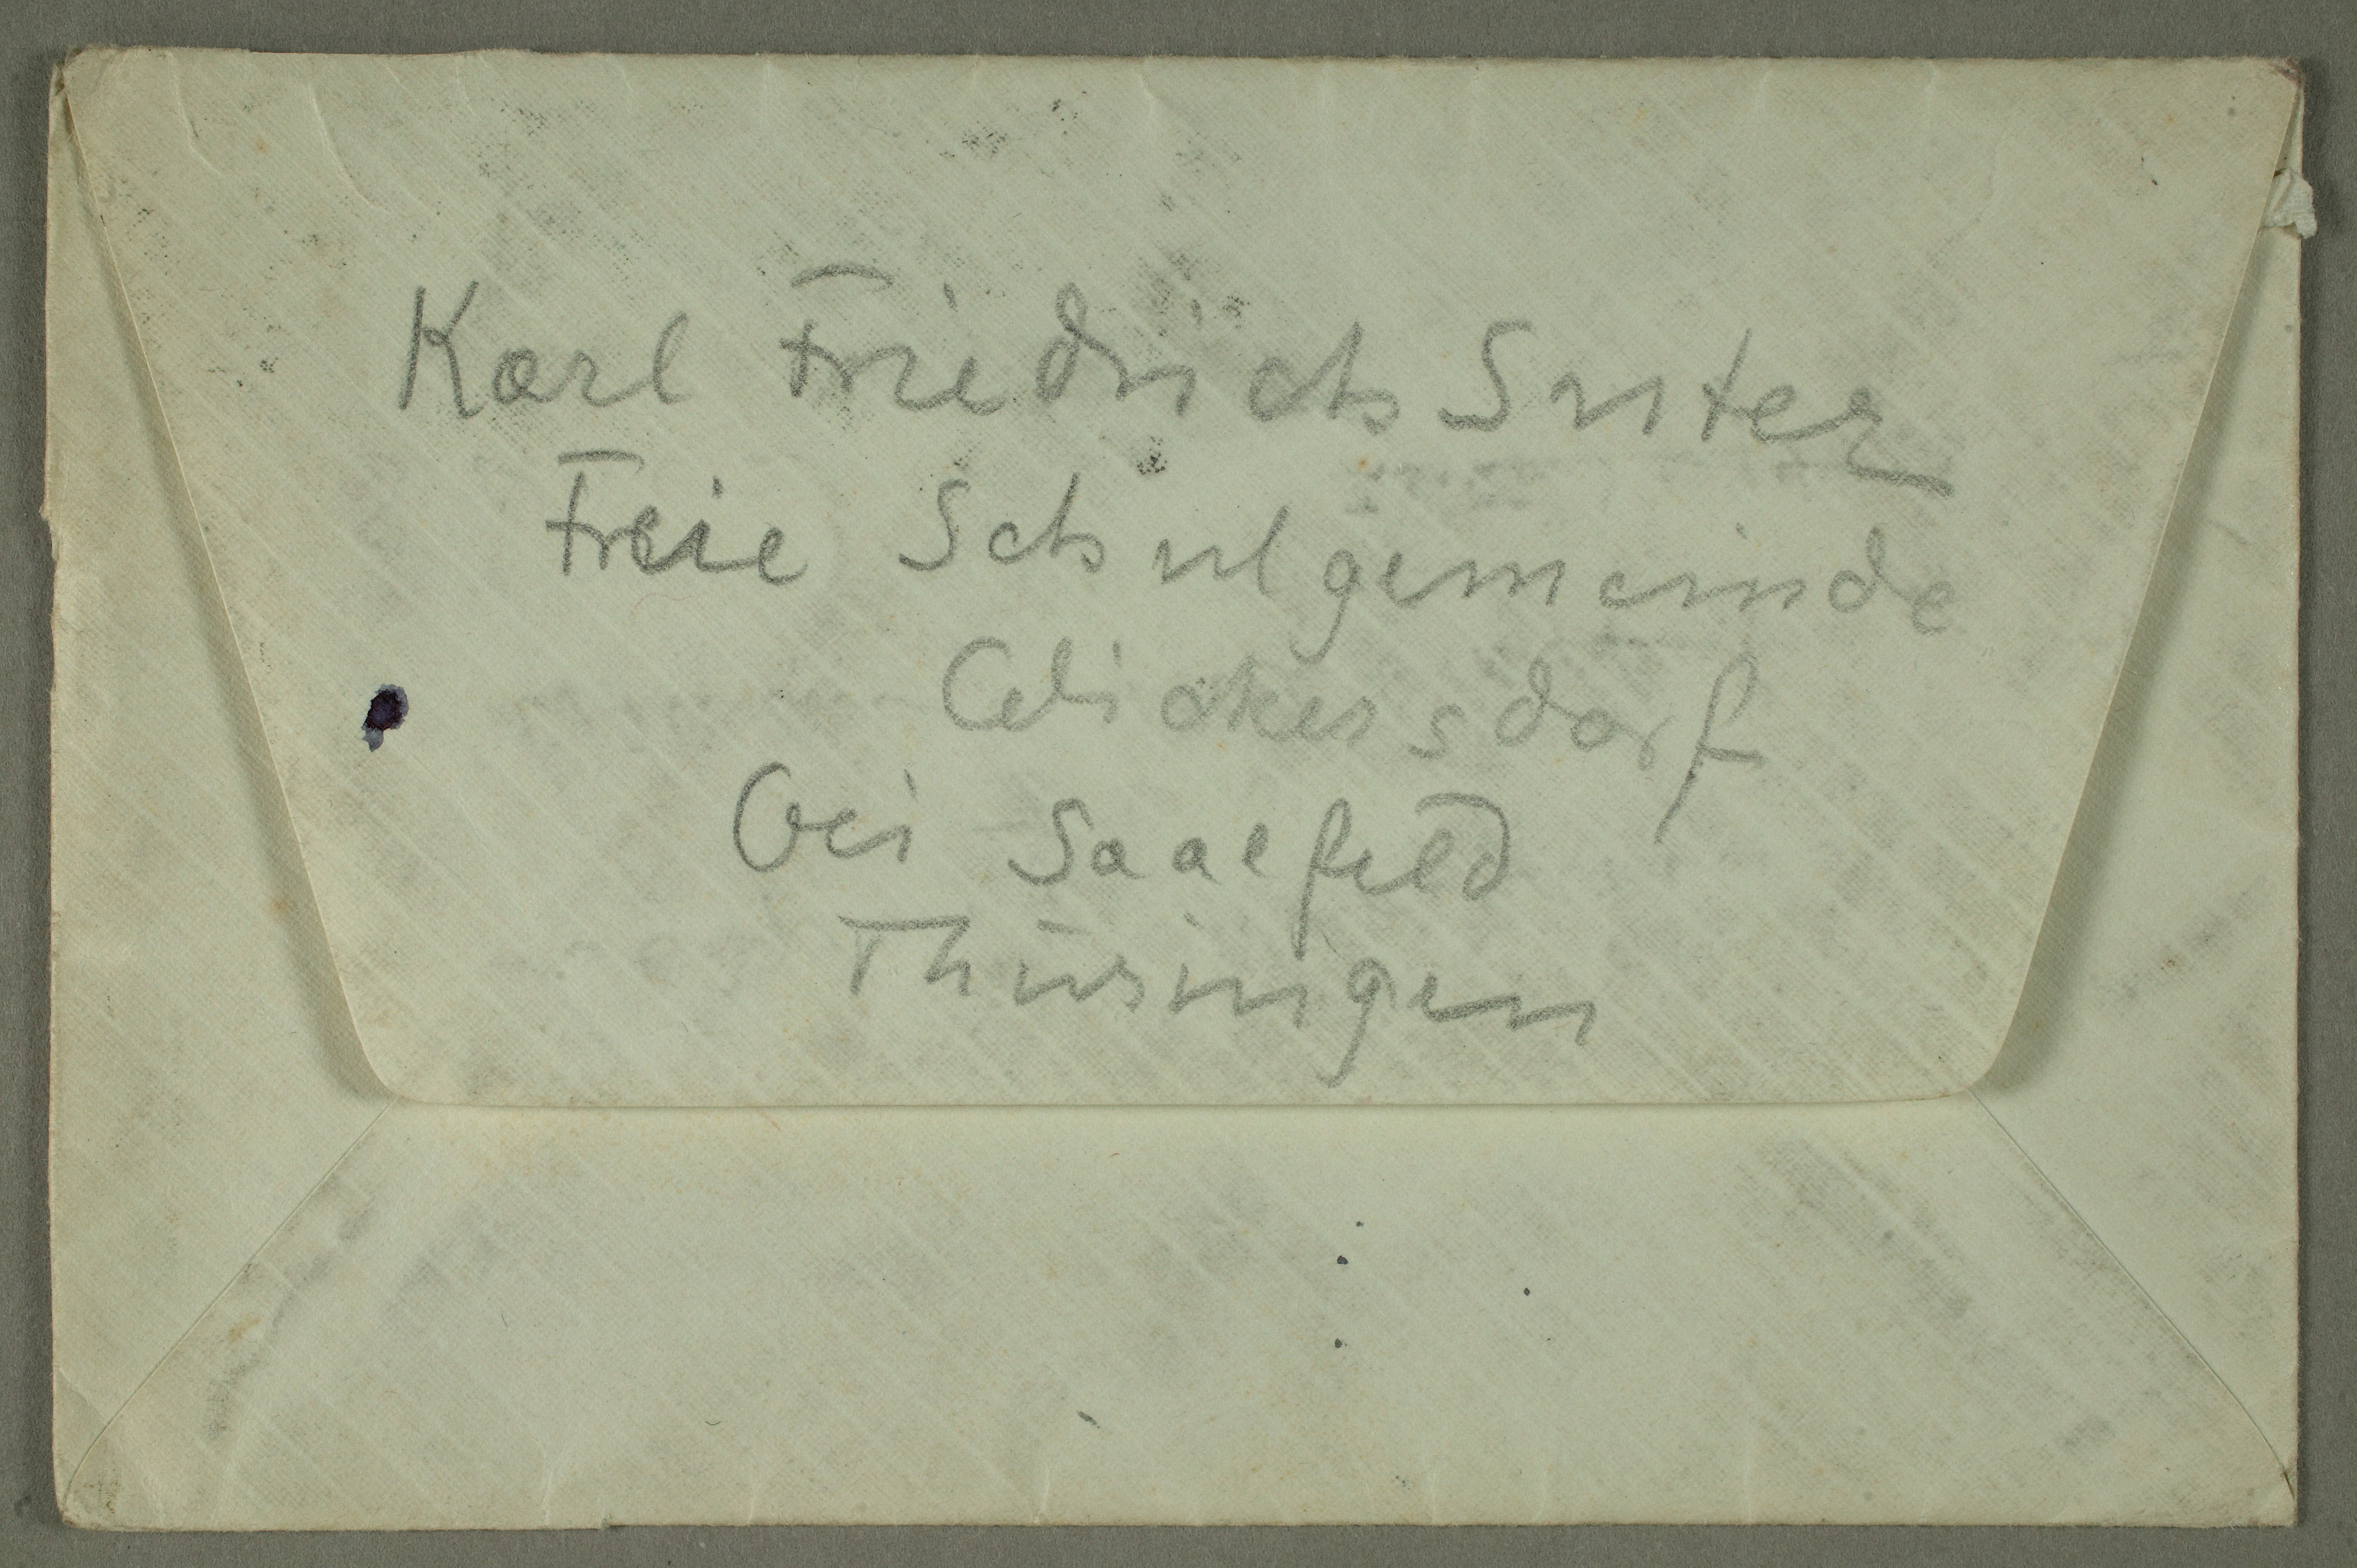 Karl Friedrich Suter
Freie Schulgemeinde
Wickersdorf
bei Saalfeld
Thüringen